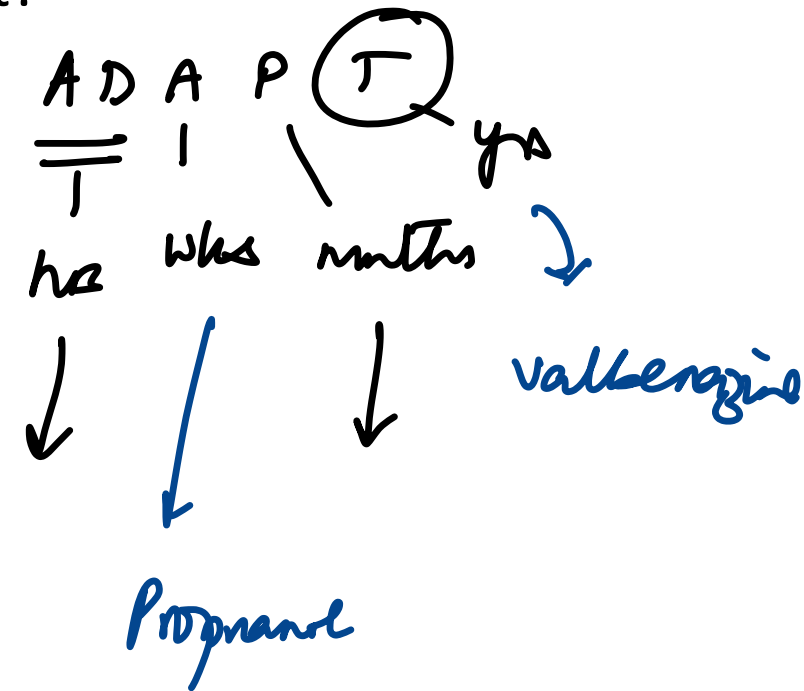 A D A P T
yrs
hrs wks months
valbenazine
Propranol